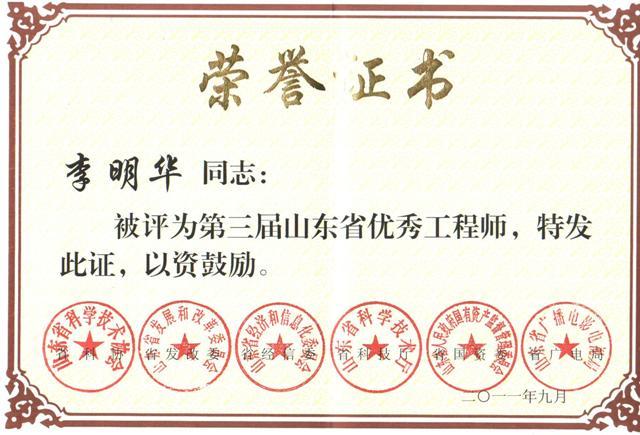 荣誉证书
李明华 同志：
被评为第三届山东省优秀工程师，特发
此证，以资鼓励。
山东省科学技术协会 山东省发展和改革委员会 山东省经济和信息化委员会 山东省科学技术厅 山东省人民政府国有资产监督管理委员会 山东省广播电影电视局
省科协 省发改委 省经信委 省科技厅 省国资委 省广电局
二〇一一年九月